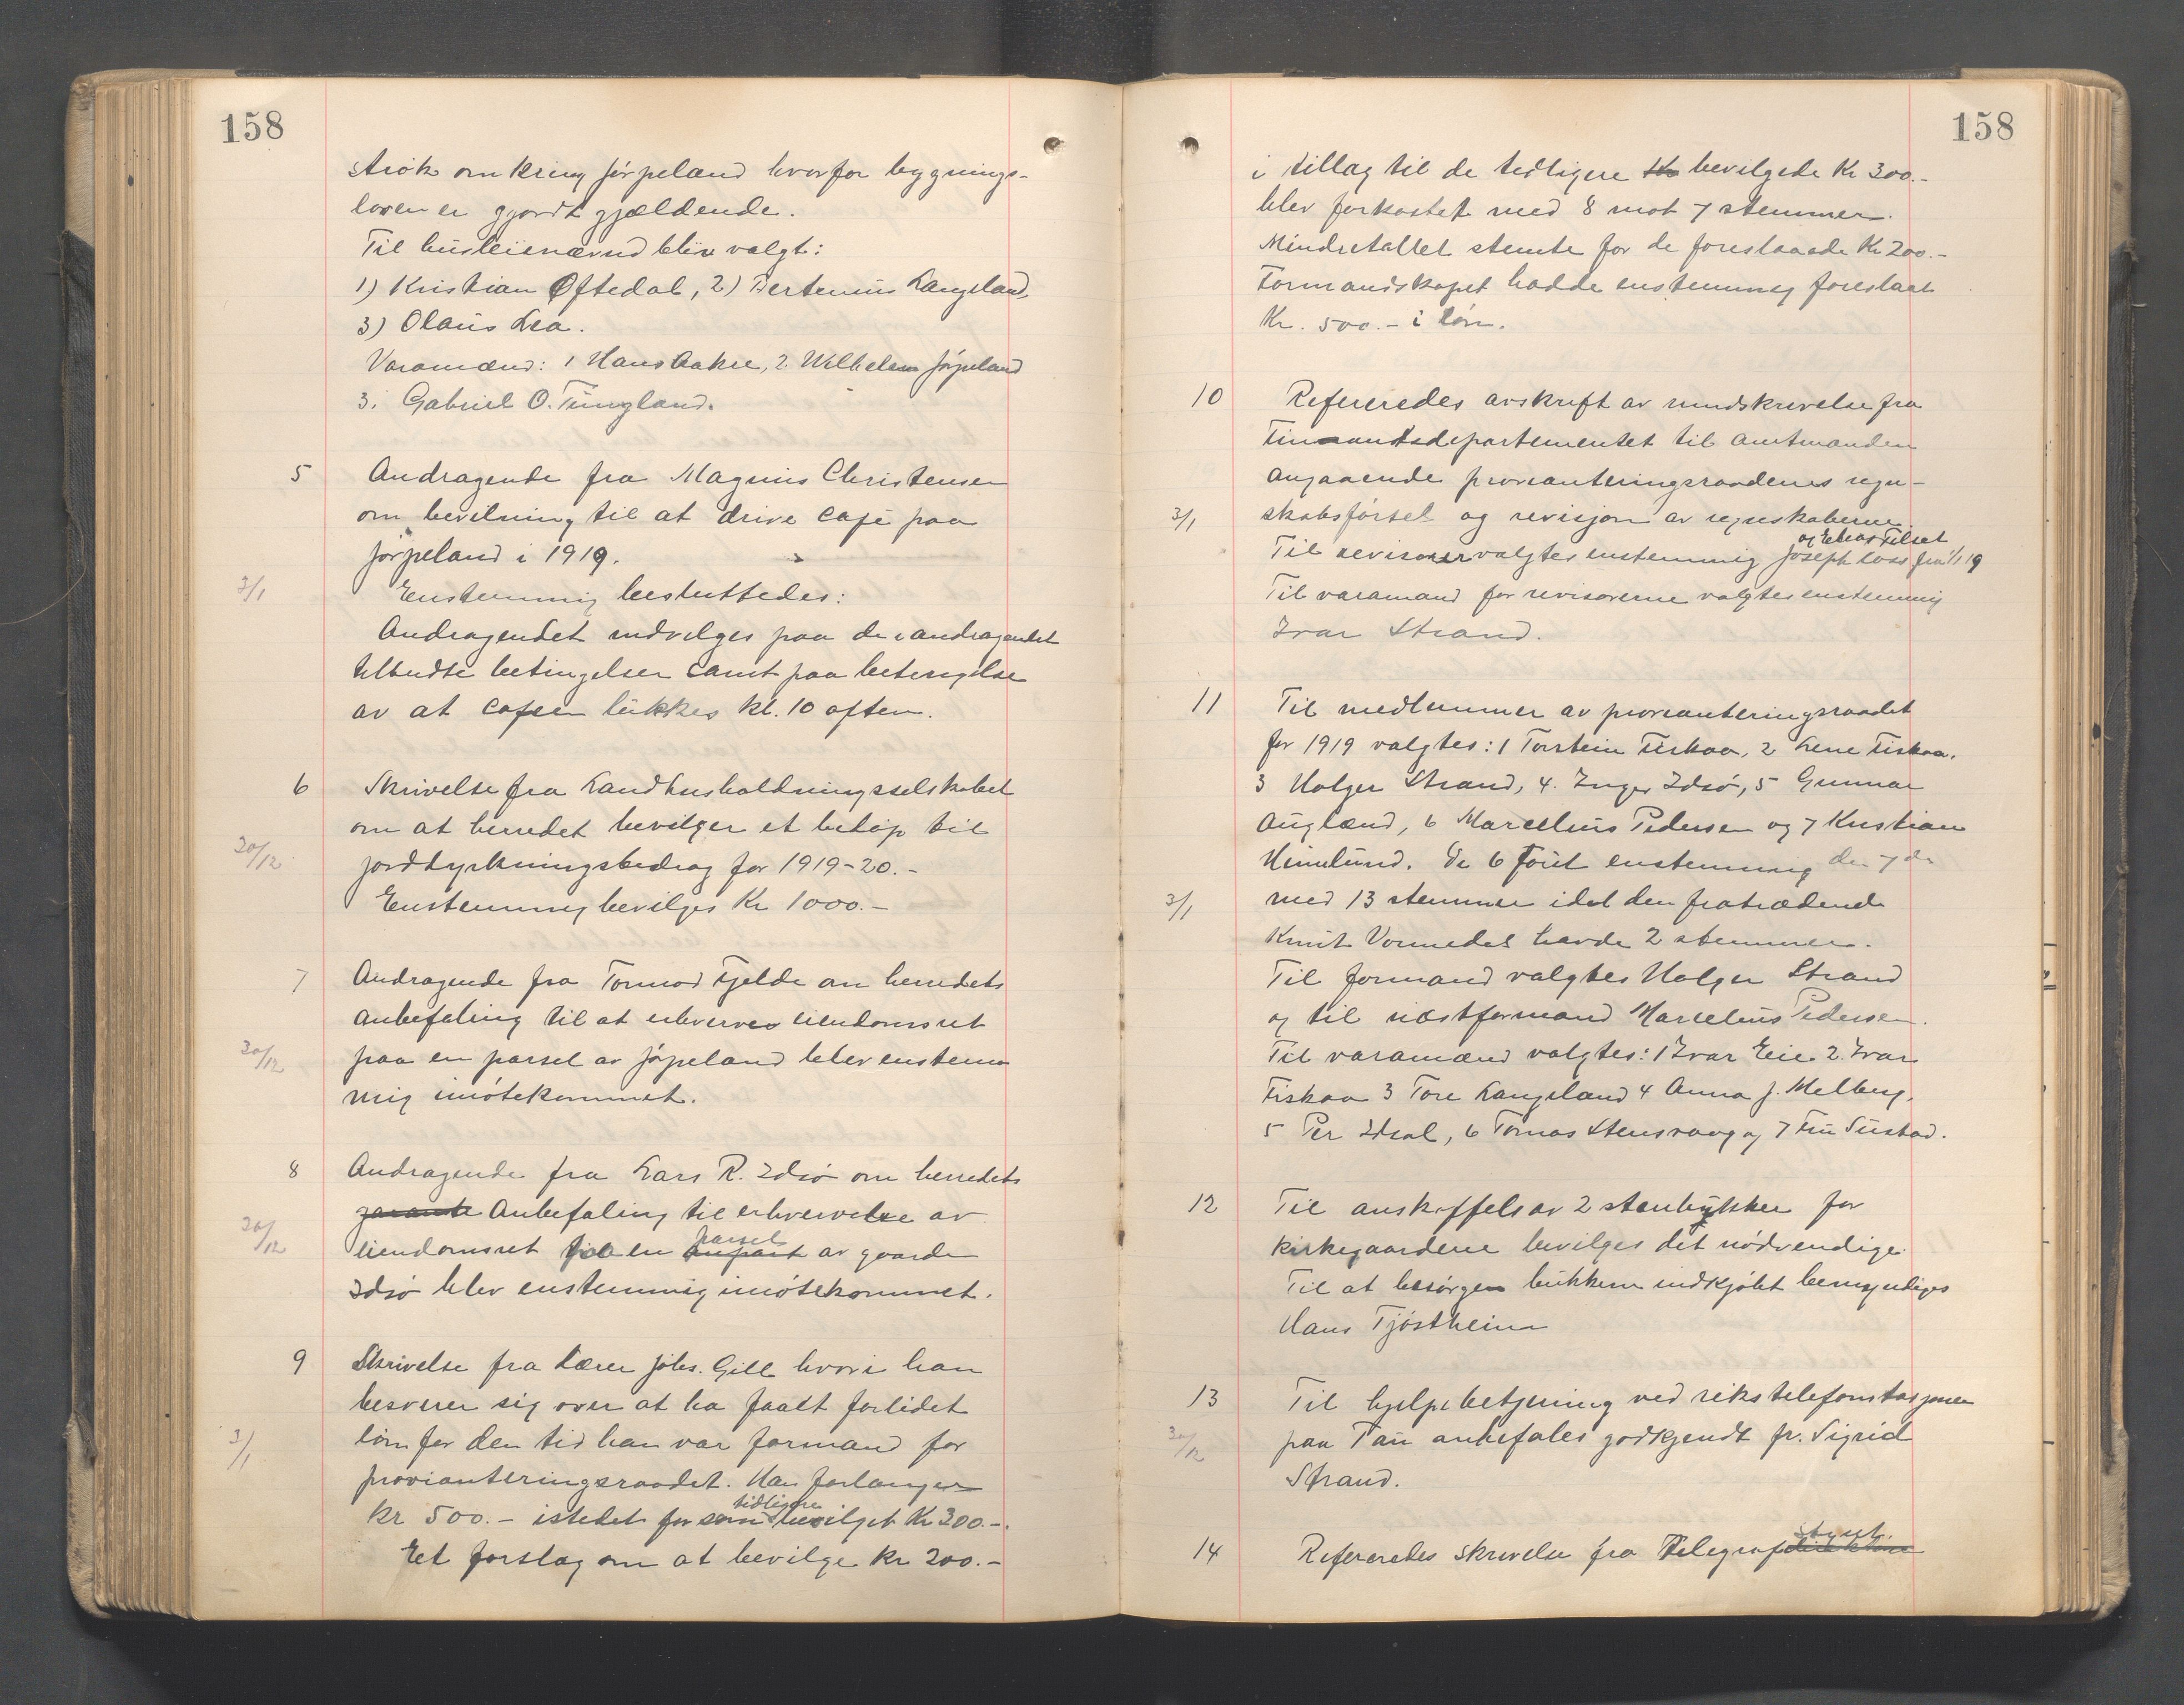 158
strøk omkring Jørpeland hvorfor bygnings-
loven er gjordt gjældende.
Til husleienævnd blev valgt:
1) Kristian Oftedal, 2) Bertinius Langeland,
3) Olaus Lea.
Varamænd: 1 Hans Aakre, 2. Wilhelm Jørpeland
3. Gabriel O. Tungland.
5 Andragende fra Magnus Christensen
om bevilning til at drive café paa
Jørpeland i 1919.
3/1 Enstemmig besluttedes:
Andragendet indvilges paa de i andragendet
tilbudte betingelser samt paa betingelse
av at cafeen lukkes kl. 10 aften.
6 Skrivelse fra Landhusholdningsselskabet
om at herredet bevilger et beløp til
20/12 jorddyrkningsbidrag for 1919-20.-
Enstemmig bevilges Kr 1000.-
7 Andragende fra Tormod Fjelde om herredets
anbefaling til at erhverve eiendomsret
20/12 paa en parsel av Jøpeland blev enstem
mig imøtekommet.
8 Andragende fra Lars R. Idsø om herredets
garanti Anbefaling til erhvervelse av
20/12 eiendomsret til en anpart parsel av gaarde
Idsø blev enstemmig imøtekommet.
9 Skrivelse fra Lærer Johs. Gill hvori han
besverer sig over at ha faatt forlidet
3/1 løn for den tid han var formand for
provianteringsraadet. Han forlanger
Kr 500.- istedet for som tidligere bevilget Kr 300.-.
Et forslag om at bevilge kr 200.-
158
i tillæg til de tidligere bevilgede Kr 300.-
blev forkastet med 8 mot 7 stemmer.
Mindretallet stemte for de foreslaaede Kr 200.-
Formandskapet hadde enstemmig foreslaat
Kr. 500.- i løn.
10 Refereredes avskrift av rundskrivelse fra
Finansdepartementet til Amtmanden
angaaende provianteringsraadenes regn-
3/1 skabsførsel og revisjon av regnskaberne.
Til revisorer valgtes enstemmig Joseph Voss og Elias Tilset fra 1/1 19
Til varamand for revisorerne valgtes enstemmig
Ivar Strand.
11 Til medlemmer av provianteringsraadet
for 1919 valgtes: 1 Torstein Fiskaa, 2 Lene Fiskaa.
3 Holger Strand, 4. Inger Idsø, 5 Gunnar
Augland, 6 Marcelius Pedersen og 7 Kristian
Heimlund. De 6 først enstemmig den 7de
3/1 med 13 stemmer idet den fratrædende
Knut Vormedal havde 2 stemmer.
Til formand valgtes Holger Strand
og til næstformand Marcelius Pedersen.
Til varamænd valgtes: 1 Ivar Eie 2. Ivar
Fiskaa 3 Tore Langeland 4 Anna J. Melberg,
5 Per Idsal, 6 Tomas Stensvaag og 7 Fin Siistad.
12 Til anskaffelse av 2 stenbukker for
kirkegaardene bevilges det nødvendige.
Til at besørge bukkene indkjøbt bemyndiges
Hans Tjøstheim
13 Til hjelpebetjening ved rikstelefonstasjonen
20/12 paa Tau anbefales godkjendt fr. Sigrid
Strand.
14 Refereredes skrivelse fra Telegrafdirektøren styret.